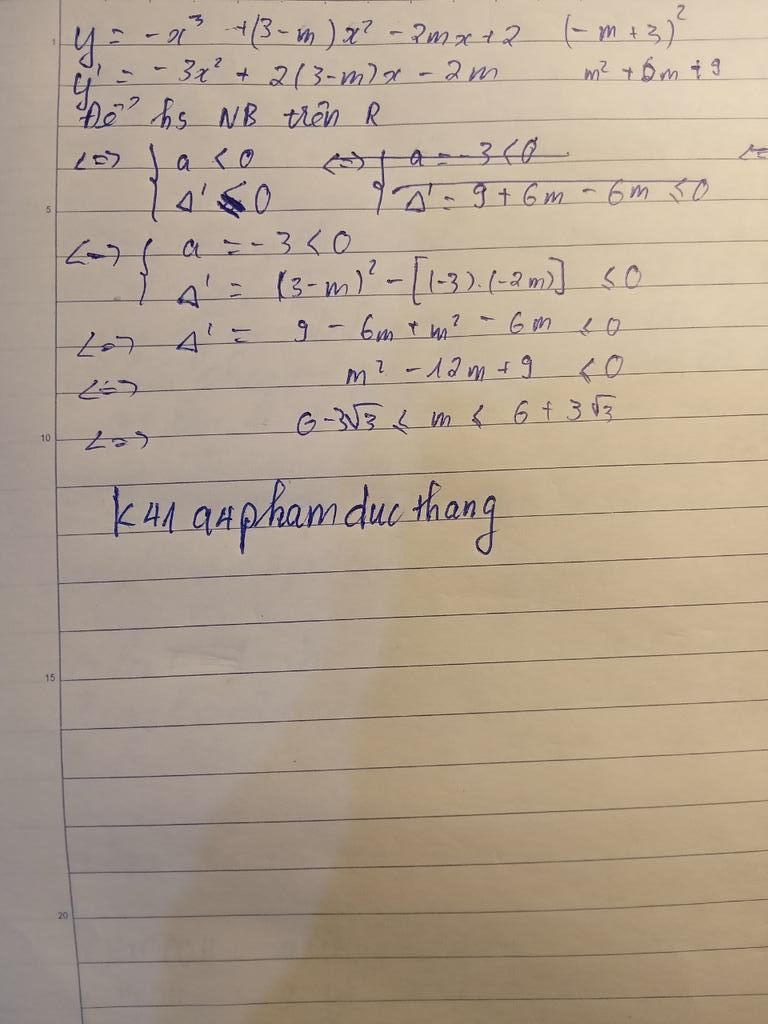 1
y = -x³ +(3-m)x² - 2mx+2 (-m+3)²
y' = -3x² + 2(3-m)x - 2m m² + 6m + 9
Để hs NB trên R
<=> { a < 0 <=> { a = -3 < 0 <=
Δ' ≤ 0 Δ' = 9 + 6m - 6m ≤ 0
5
<=> { a = -3 < 0
Δ' = (3-m)² - [(-3).(-2m)] ≤ 0
<=> Δ' = 9 - 6m + m² - 6m ≤ 0
<=> m² - 12m + 9 ≤ 0
<=> 6-3√3 ≤ m ≤ 6 + 3√3
10
K41 a4phamducthang
15
20